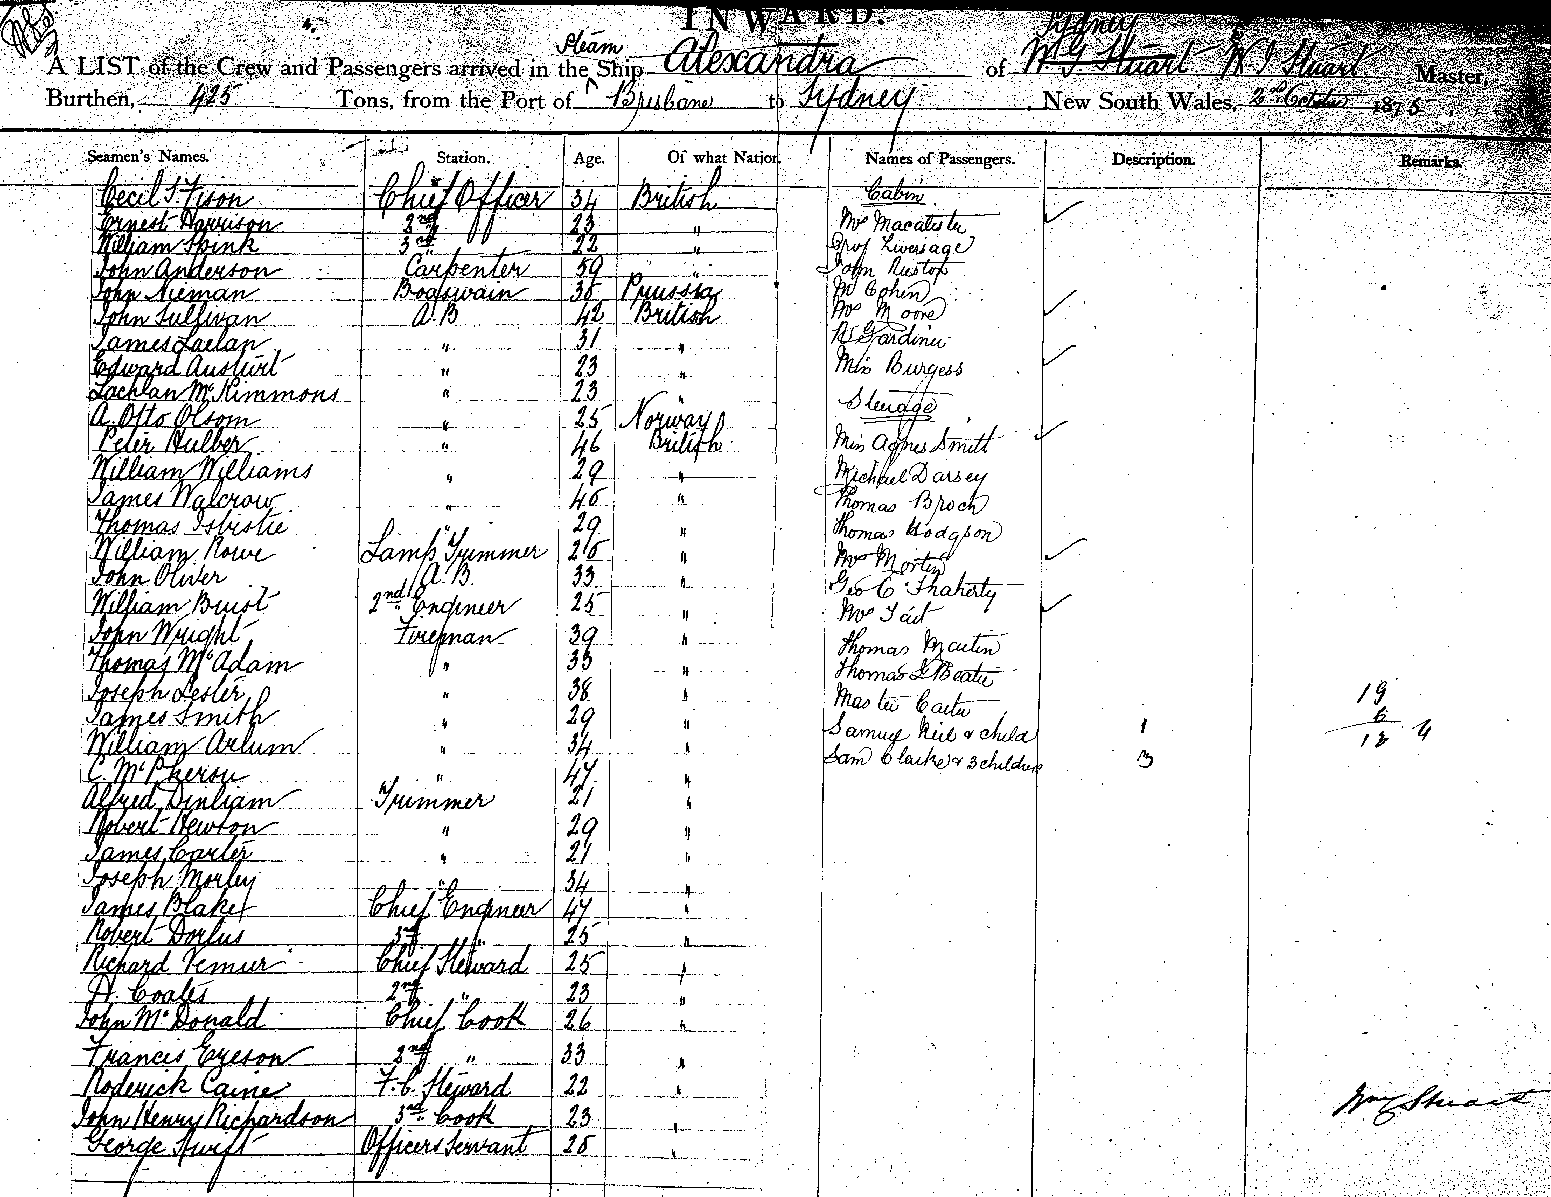 INWARD.
Sydney
A LIST of the Crew and Passengers arrived in the Steam Ship Alexandra of W G Stuart W G Stuart Master,
Burthen, 425 Tons, from the Port of Brisbane to Sydney, New South Wales, 2nd October 1875
Seamen's Names. Station. Age. Of what Nation. Names of Passengers. Description. Remarks.
Cecil T Fison Chief Officer 34 British Cabin
Ernest Harrison 2nd " 23 " Mrs Macalister
William Spink 3rd " 22 " Prof Liversage
John Anderson Carpenter 59 " John Ruston
John Nieman Boaswain 35 Prussia Mr Cohen
John Sullivan A.B 42 British Mrs Moore
James Laelan " 31 " R Gardiner
Edward " 23 " Miss Burgess
Lachlan McKimmons " 23 " Steerage
A. Otto Olsom " 25 Norway
Peter Hulber " 46 British Miss Agnes Smith
William Williams " 29 " Michael Darsey
James Walcrow " 45 " Thomas Broch
Thomas Isbistie " 29 " Thomas Hodgson
William Rowe Lamp Trimmer 25 " Mrs Morten
John Oliver A.B. 33 " Geo C Flaherty
William Brust 2nd Engineer 25 " Mrs Tait
John Wright Fireman 39 " Thomas Martin
Thomas McAdam " 33 " Thomas G Beatie
Joseph Lester " 38 " Master Carter 19
James Smith " 29 " Samuel Neil & child 1 6
William Arlum " 34 " Sam Clarke & 3 children 3 12 4
C. McPherson " 47 "
Alfred Dinham Trimmer 21 "
Robert Newton " 29 "
James Carter " 21 "
Joseph Morley " 34 "
James Blake Chief Engineer 47 "
Robert Dorlus 3rd " 25 "
Richard Chief Steward 25 "
A. Coates 2nd " 23 "
John McDonald Chief Cook 26 "
Francis Eyeson 2nd " 33 "
Roderick Caine F.C. Steward 22 "
John Henry Richardson 3rd Cook 23 " Wm G Stuart
George Swift Officers Servant 25 "